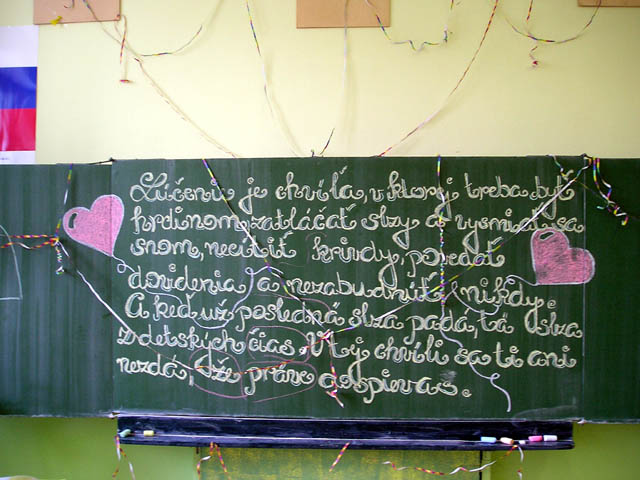 Lúčenie je chvíľa, v ktorej treba byť
hrdinom, zatláčať slzy a vysmiať sa
snom, necítiť krivdy, povedať
dovidenia a nezabudnúť nikdy.
A keď už posledná slza padá, tá slza
z detských čias. V tej chvíli sa ti ani
nezdá, že práve dospievaš.